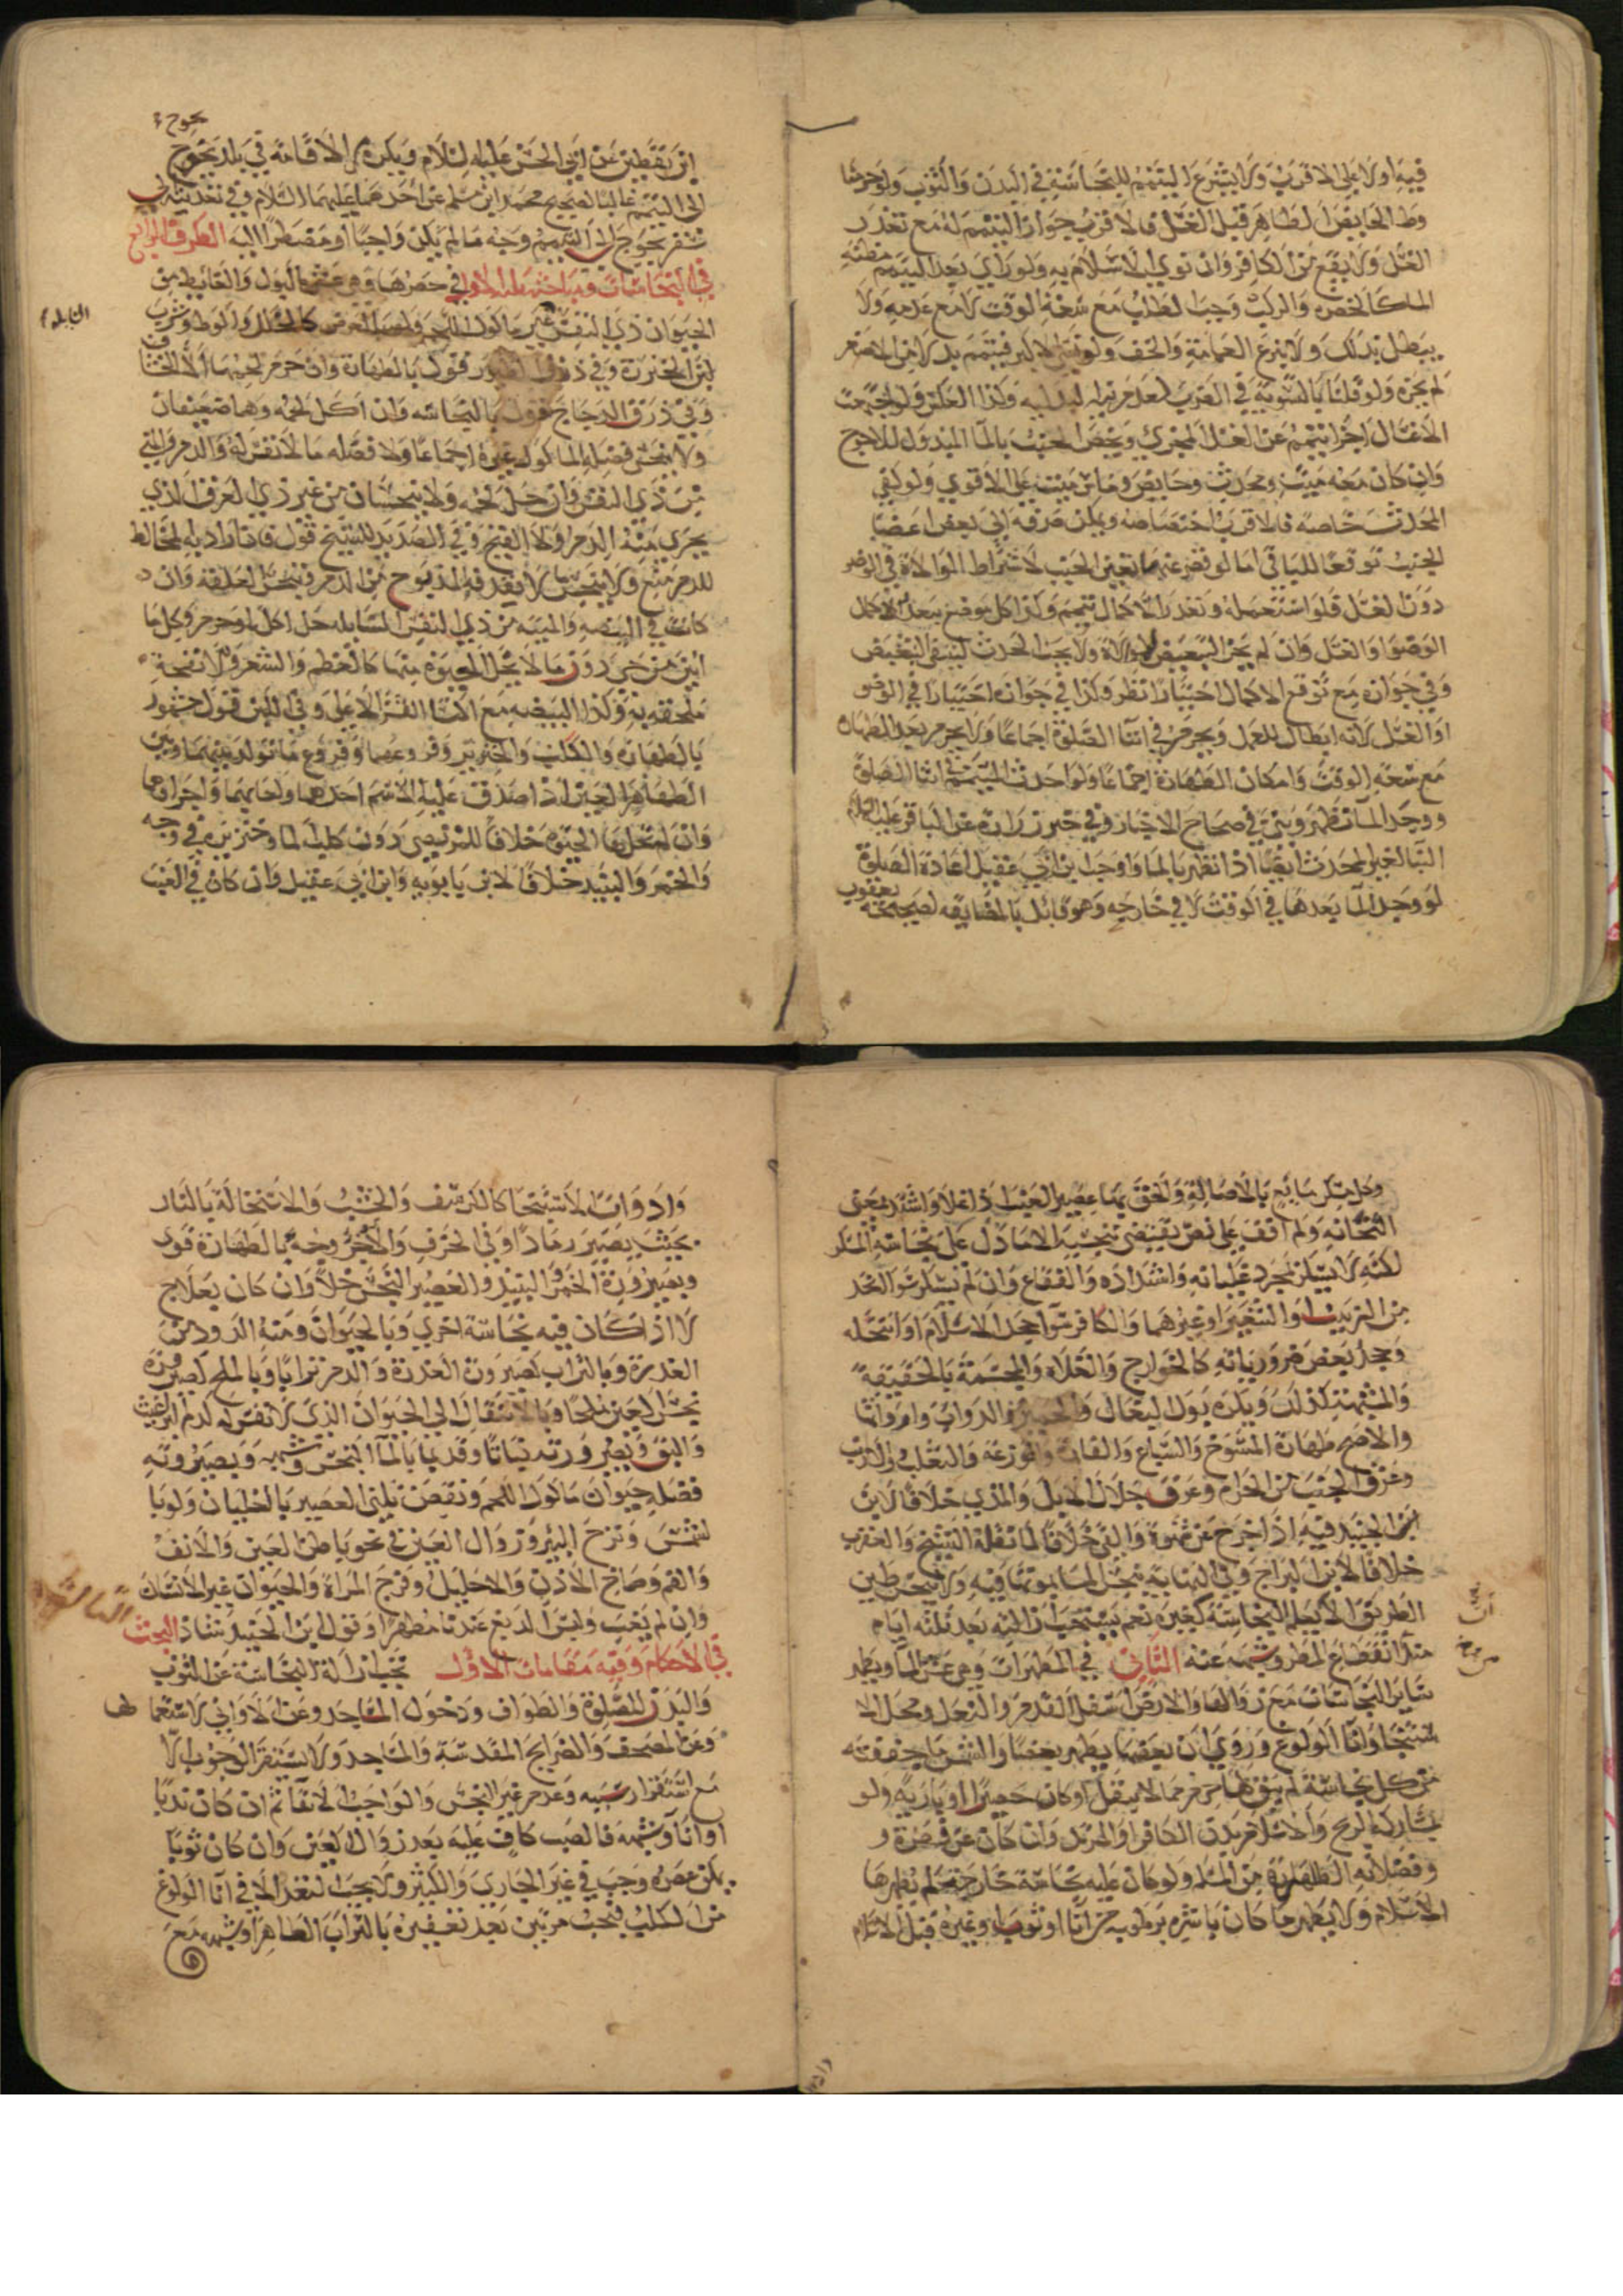 فيه اولا على الاقرب ولا يشرع التيمم للنجاسة في البدن والثوب ولو حرمنا
وطا الحايض الطاهر قبل الغسل فالاقرب جواز التيمم له مع تعذر
الغسل ولا يقع من الكافر وان نوي الاسلام به ولو راي بعد التيمم مظنة
الما كالخضره والركب وجب الطلب مع سعة الوقت لا مع عدمه ولا
يبطل بذلك ولا بنزع العمامة والخف ولو نسي الاكبر فتيمم بدلا من الاصغر
لم يجزه ولو قلنا بالتسوية في الضرب لعدم نيه البدليه وكذا العكس ولو اجتمعت
الاغسال اجزا تيمم عن الغسل المجزي ويخص الجنب بالما المبذول للاحوج
وان كان معه ميت ومحدث وحايض وماس ميت على الاقوي ولو كفي
المحدث خاصه فالاقرب اختصاصه ويمكن صرفه الى بعض اعضا
الجنب توقعا للباقي اما لو قصر عنهما تعين الجنب لاشتراط الموالاة في الوضو
دون الغسل فلو استعمله وتعذر الاكمال تيمم وكذا كل موضع يتعذر الاكمال
الوضوا والغسل وان لم يجز التبعيض للموالاة ولا يجب الحدث لينتفي التبعيض
وفي جوازه مع توقع الاكمال اختيارا نظر وكذا في جوازه اختيارا في الوضو
او الغسل لانه ابطال للعمل ويحرم في اثنا الصلوة اجماعا ولا يحرم بعد الطهارة
مع سعة الوقت وامكان الطهارة اجماعا ولو احدث المتيمم في اثنا الصلوة
ووجد الما تطهر وبني في صحاح الاخبار وفي خبر زرارة عن الباقر عليه السلام
البنا لغير المحدث ايضا اذا تطهر بالما واوجب ابن ابي عقيل اعادة الصلوة
لو وجد الما بعدها في الوقت لا في خارجه وهو قايل بالمضايقه لصحيحة يعقوب
يحوج
ابن يقطين عن ابي الحسن عليه السلام ويكره الاقامة في بلد يحوج
الى التيمم غالبا لصحيح محمد ابن مسلم عن احدهما عليهما السلام وفي تعديته الى
سفر يحوج الى التيمم وجه ما لم يكن واجبا او مضطرا اليه الطرف الرابع
في النجاسات ومباحثه ثلثة الاول في حصرها وهي عشر البول والغايط من
الحيوان ذي النفس غير ماكول اللحم ولو بالعرض كالجلال والموطو وشرب
لبن الخنزيرة وفي ذرق الطيور قول بالطهارة وان حرم لحمها الا الخشاف
وفي ذرق الدجاج قول بالنجاسه وان اكل لحمه وهما ضعيفان
ولا ينجس فضله الماكول غيره اجماعا ولا فضله ما لا نفس له والدم والمني
من ذي النفس وان حل لحمه ولا ينجسان من غير ذي العرق الذي
يجري منه الدم ولا القيح وفي الصديد للشيخ قول فان اراد به المخالط
للدم منع ولا ينجس ما لا يقذفه المذبوح من الدم وينجس العلقه وان
كانت في البيضه والميته من ذي النفس السايله حل اكله او حرم وكل ما
ابين من حي دون ما لا تحل الحيوة منها كالعظم والشعر والانفحة
ملحقة به وكذا البيضه مع اكتسا القشر الاعلى وفي اللبن قول مشهور
بالطهارة والكلب والخنزير وفروعهما وفروع ما تولد بينهما وبين
الطاهر العين اذا صدق عليه اسم احدهما ولعابهما واجزاوهما
وان لم تحلها الحيوة خلافا للمرتضى دون كلب الما وخنزيره في وجه
والخمر والنبيذ خلافا لابن بابويه وابن ابي عقيل وان كان في العنب
وكل مسكر مايع بالاصالة والحق بها عصير العنب اذا غلا واشتد بمعنى
الثخانه ولم اقف على نص يقتضي تنجيسه الا ما دل على نجاسة المسكر
لكنه لا يسكر بمجرد غليانه واشتداده والفقاع وان لم يسكر سوا اتخذ
من الزبيب او الشعير او غيرهما والكافر سوا جحد الاسلام او انتحله
وجحد بعض ضرورياته كالخوارج والغلاه والمجسمة بالحقيقة
والمشبهة كذلك ويكره بول البغال والحمير والدواب واروائها
والاصح طهارة المسوخ والسباع والفارة والوزغة والثعلب والارنب
وعرق الجنب من الحرام وعرق جلال الابل والمذي خلافا لابن
الجنيد فيه اذا خرج عن شهوة والقي خلافا لما نقله الشيخ والعقرب
خلافا لابن البراج وفي النهاية ينجس الما بموتها فيه ولا ينجس طين
الطريق الا بعلم النجاسة كغيره نعم يستحب ازالته بعد ثلثه ايام
منذ انقطاع المطر وشبهه عنه الثاني في المطهرات وهي عشر الما ويطهر
ساير النجاسات مع زوالها والارض اسفل القدم والنعل ومحل الا
ستنجا وانا الولوغ وروي ان بعضها يطهر بعضا والشمس ما جففته
من كل نجاسة لم يبق لها جرم مما لا ينقل او كان حصيرا او باريه ولو
بمشاركة الريح والاسلام بدن الكافر او المرتد وان كان عن فطرة و
وفضلاته الطاهرة من المسلم ولو كان عليه نجاسة خارجة لم يطهرها
الاسلام ولا يطهر ما كان باشره برطوبه من انا او ثوب او غيره قبل الاسلام
وادوات الاستنجا كالكرسف والخشب والاستحالة بالنار
بحيث يصير رمادا وفي الخزف والاجر وجه بالطهارة قوي
وبصيرورة الخمر والنبيذ والعصير النجس خلا وان كان بعلاج
لا اذا كان فيه نجاسة اخري وبالحيوان ومنه الدود من
العذرة وبالتراب لصيرورة العذرة والدم ترابا وبالملح لصيرورة
نجس العين ملحا وبالانتقال الى الحيوان الذي لا نفس له كدم البراغيث
والبق وبصيرورته نباتا وقديما بالما النجس وشبهه وبصيرورته
فضله حيوان ماكول اللحم ونقص ثلثي العصير بالغليان ولو با
لشمس ونزح البير وزوال العين في نحو باطن العين والانف
والفم وصماخ الاذن والاحليل وفرج المراة والحيوان غير الانسان
وان لم يغب وليس الدبغ عندنا مطهرا وقول ابن الجنيد شاذ البحث الثالث
في الاحكام وفيه مقامات الاول تجب ازالة النجاسة عن الثوب
والبدن للصلوة والطواف ودخول المساجد وعن الاواني لاستعمالها
وعن المصحف والضرايح المقدسة والمساجد ولا يستقر الوجوب الا
مع استقرار سببه وعدم غير النجس والواجب الانقا ثم ان كان بدنا
او انا او شبهه فالصب كاف عليه بعد زوال العين وان كان ثوبا
يمكن عصره وجب في غير الجاري والكثير ولا يجب التعدد الا في انا الولوغ
من الكلب فيجب مرتين بعد تعفيره بالتراب الطاهر او شبهه مع